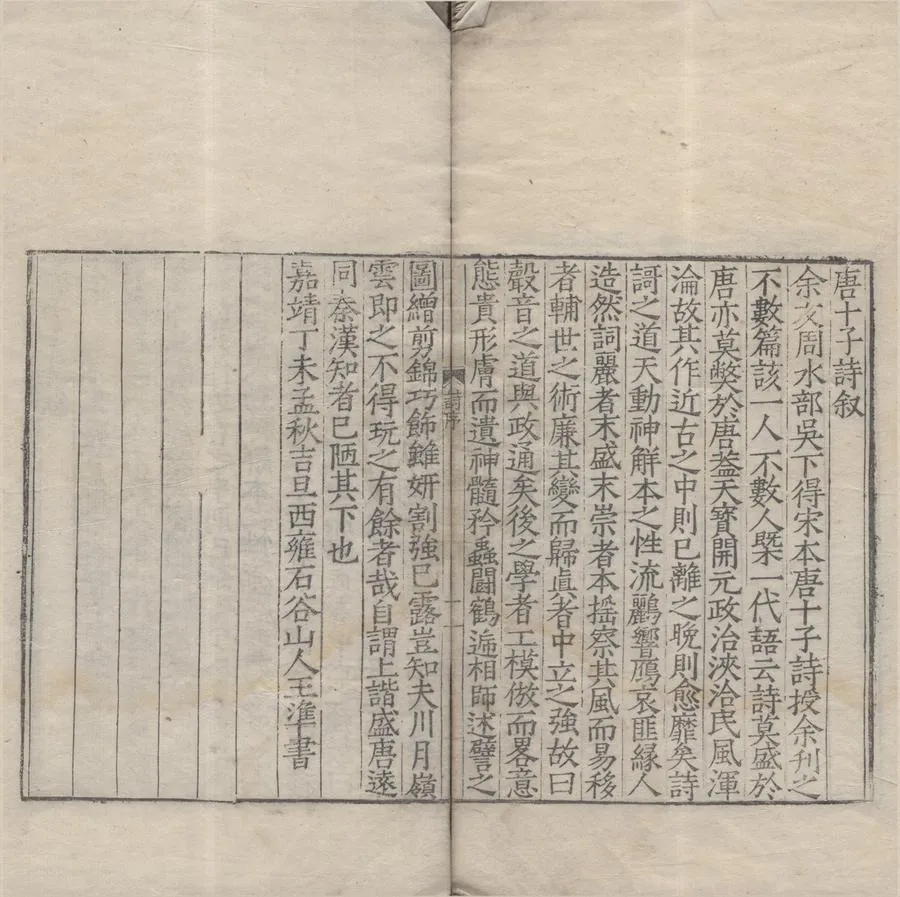 唐十子詩叙
余友周水部吳下得宋本唐十子詩授余刋之
不數篇該一人不數人槩一代語云詩莫盛於
唐亦莫獘於唐葢天寳開元政治浹洽民風渾
淪故其作近古之中則已離之晚則愈靡矣詩
謌之道天動神觧本之性流鸝響鴈哀匪緣人
造然詞麗者末盛末崇者本揺察其風而易移
者輔世之術廉其變而歸眞者中立之強故曰
聲音之道與政通矣後之學者工模倣而畧意
態貴形膚而遺神髓矜蟲鬪鶴遞相師述譬之
詩序
一
圖繒剪錦巧飾雖妍割強已露豈知夫川月嶺
雲即之不得玩之有餘者哉自謂上諧盛唐遠
同秦漢知者已陋其下也
嘉靖丁未孟秋吉旦西雍石谷山人王準書